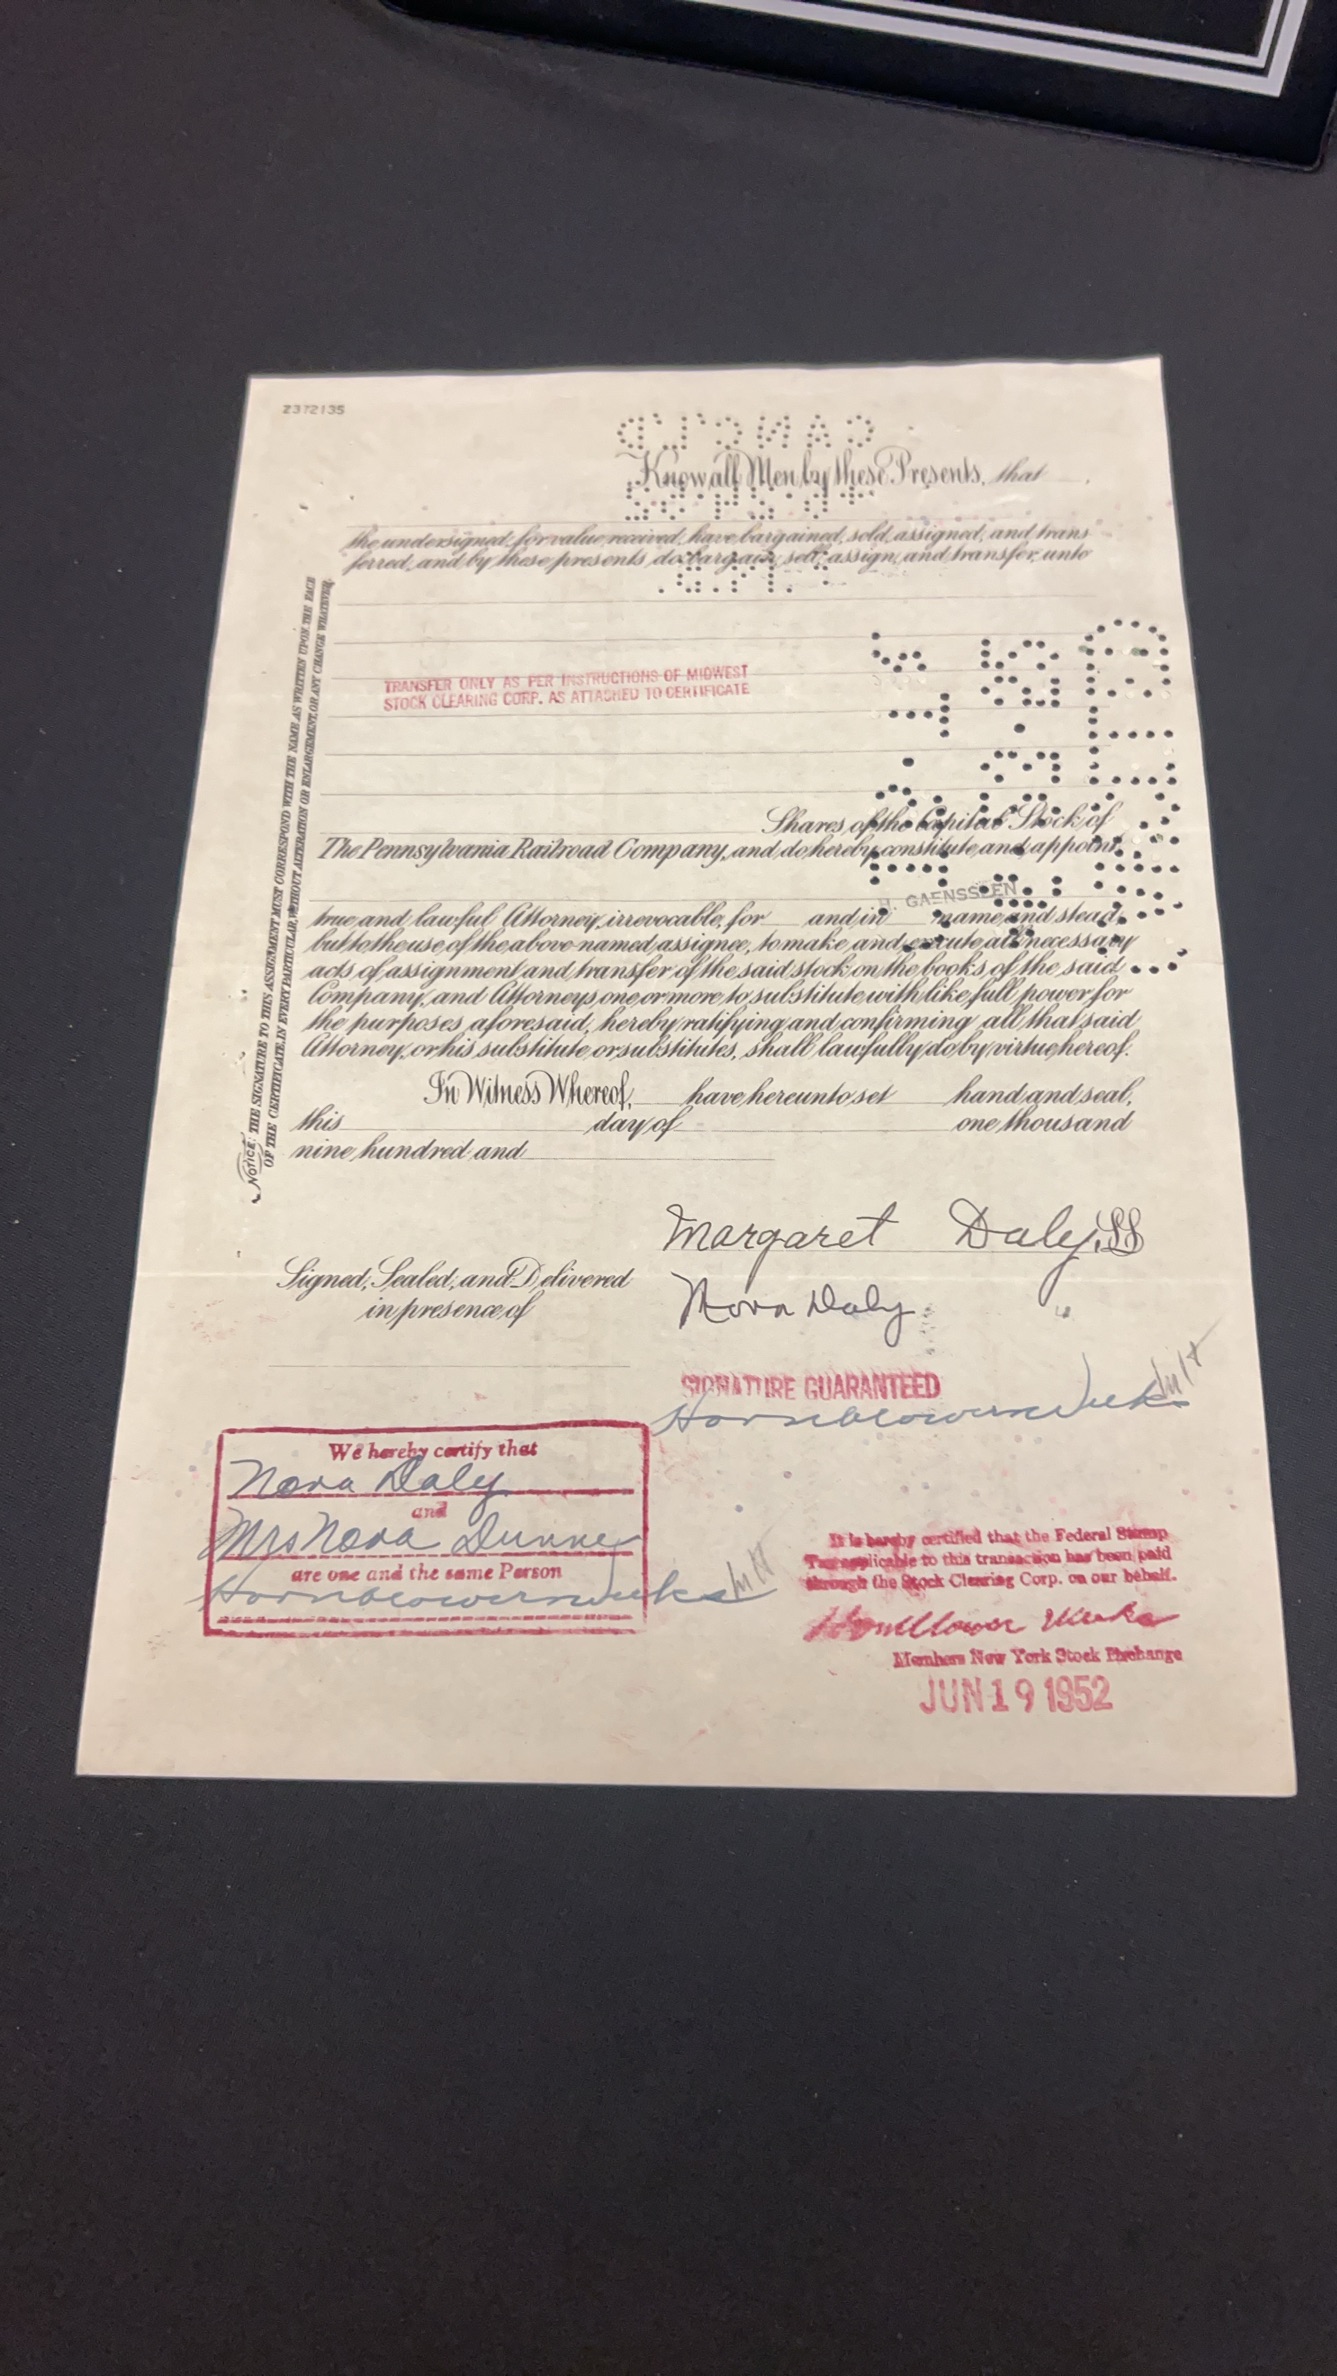 Z372135
Know all Men by these Presents, that
the undersigned, for value received, have bargained, sold, assigned, and trans
ferred, and by these presents do bargain, sell, assign, and transfer, unto
TRANSFER ONLY AS PER INSTRUCTIONS OF MIDWEST
STOCK CLEARING CORP. AS ATTACHED TO CERTIFICATE
Shares of the Capital Stock of
The Pennsylvania Railroad Company, and do hereby constitute and appoint
H. GAENSSLEN
true and lawful Attorney, irrevocable, for and in name and stead,
but to the use of the above named assignee, to make and execute all necessary
acts of assignment and transfer of the said stock on the books of the said
Company, and Attorneys one or more to substitute with like full power for
the purposes aforesaid, hereby ratifying and confirming all that said
Attorney, or his substitute or substitutes, shall lawfully do by virtue hereof.
In Witness Whereof, have hereunto set hand and seal,
this day of one thousand
nine hundred and
NOTICE: THE SIGNATURE TO THIS ASSIGNMENT MUST CORRESPOND WITH THE NAME AS WRITTEN UPON THE FACE
OF THE CERTIFICATE, IN EVERY PARTICULAR, WITHOUT ALTERATION OR ENLARGEMENT, OR ANY CHANGE WHATEVER.
Margaret Daly
Nora Daly
Signed, Sealed, and Delivered
in presence of
SIGNATURE GUARANTEED
Hornblower & Weeks
We hereby certify that
Nora Daly
and
Mrs Nora Dunne
are one and the same Person
Hornblower & Weeks
It is hereby certified that the Federal Stamp
Tax applicable to this transaction has been paid
through the Stock Clearing Corp. on our behalf.
Hornblower & Weeks
Members New York Stock Exchange
JUN 19 1952